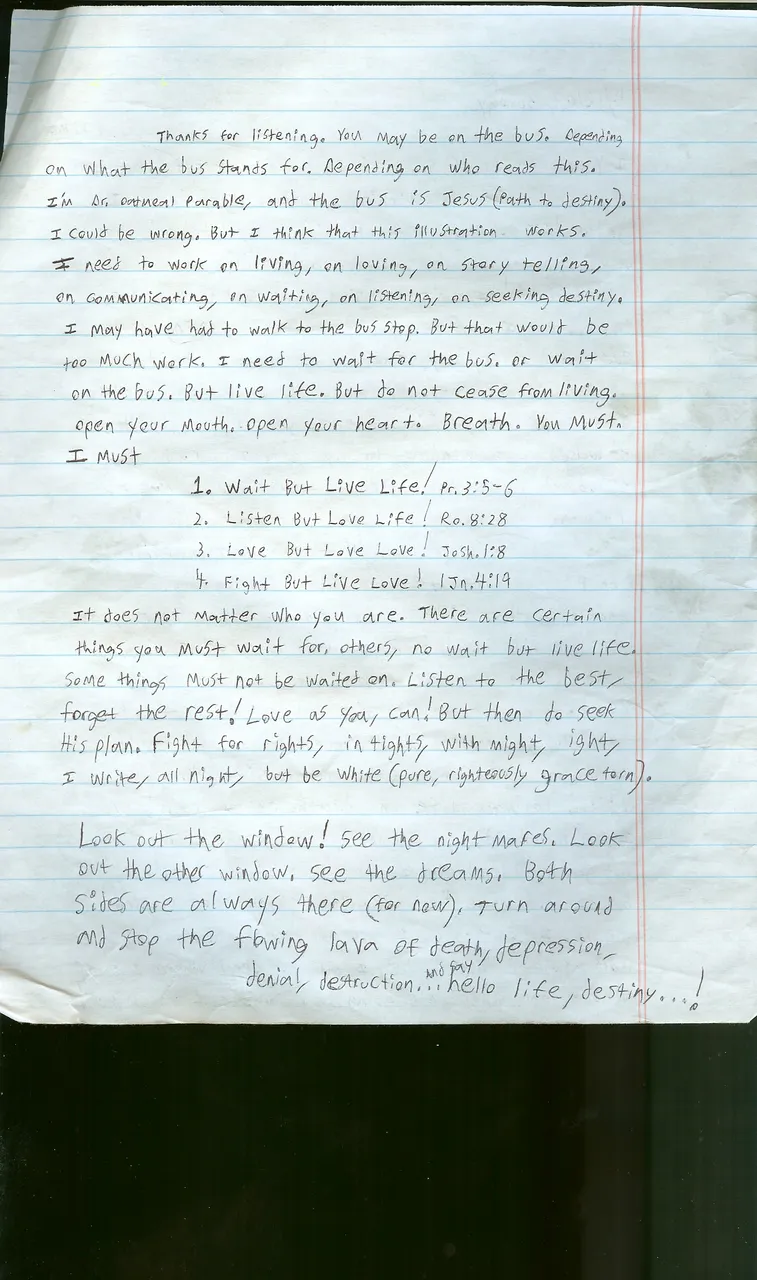 Thanks for listening. You may be on the bus. Depending
on what the bus stands for. Depending on who reads this.
I'm Dr. Oatmeal Parable, and the bus is Jesus (path to destiny).
I could be wrong. But I think that this illustration works.
I need to work on living, on loving, on story telling,
on communicating, on waiting, on listening, on seeking destiny.
I may have had to walk to the bus stop. But that would be
too much work. I need to wait for the bus. or wait
on the bus. But live life. But do not cease from living.
open your mouth. open your heart. Breath. You Must.
I Must
1. Wait But Live Life! Pr. 3:5-6
2. Listen But Love Life! Ro. 8:28
3. Love But Love Love! Josh. 1:8
4. Fight But Live Love! 1 Jn. 4:19
It does not matter who you are. There are certain
things you must wait for, others, no wait but live life.
Some things must not be waited on. Listen to the best,
forget the rest! Love as you, can! But then do seek
His plan. Fight for rights, in tights, with might, ight,
I write, all night, but be white (pure, righteously grace torn).
Look out the window! See the night mares. Look
out the other window. See the dreams. Both
sides are always there (for now). Turn around
and stop the flowing lava of death, depression,
denial, destruction... and say hello life, destiny...!